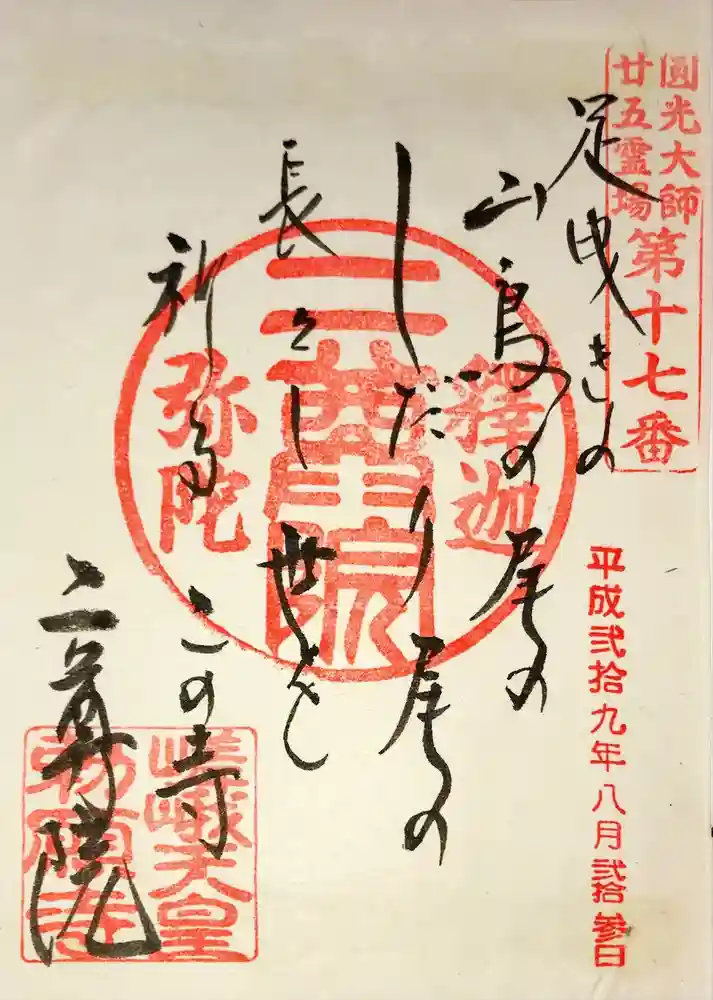 圓光大師
廿五霊場
第十七番
平成弐拾九年八月弐拾参日
足曳きの
山鳥の尾の
しだり尾の
長々し世を
祈るこの寺
二尊院
釋迦
二尊院
弥陀
嵯峨天皇
勅願寺